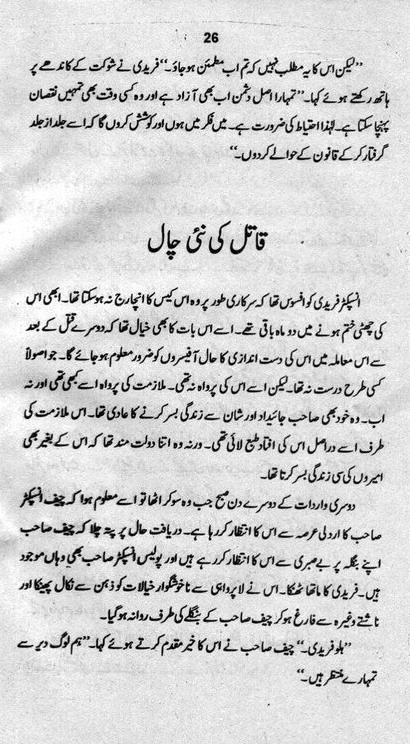 26
”لیکن اس کا یہ مطلب نہیں کہ تم اب مطمئن ہو جاؤ۔“ فریدی نے شوکت کے کاندھے پر
ہاتھ رکھتے ہوئے کہا۔ ”تمہارا اصل دشمن اب بھی آزاد ہے اور وہ کسی وقت بھی تمہیں نقصان
پہنچا سکتا ہے۔ لہٰذا احتیاط کی ضرورت ہے۔ میں فکر میں ہوں اور کوشش کروں گا کہ اسے جلد از جلد
گرفتار کر کے قانون کے حوالے کردوں۔“
قاتل کی نئی چال
انسپکٹر فریدی کو افسوس تھا کہ سرکاری طور پر وہ اس کیس کا انچارج نہ ہو سکتا تھا۔ ابھی اس
کی چھٹی ختم ہونے میں دو ماہ باقی تھے۔ اسے اس بات کا بھی خیال تھا کہ دوسرے قتل کے بعد
سے اس معاملہ میں اس کی دست اندازی کا حال آفیسروں کو ضرور معلوم ہو جائے گا۔ جو اصولاً
کسی طرح درست نہ تھا۔ لیکن اسے اس کی پرواہ نہ تھی۔ ملازمت کی پرواہ اسے کبھی تھی اور نہ
اب۔ وہ خود بھی صاحب جائیداد اور شان سے زندگی بسر کرنے کا عادی تھا۔ اس ملازمت کی
طرف اسے دراصل اس کی افتاد طبع لائی تھی۔ ورنہ وہ اتنا دولت مند تھا کہ اس کے بغیر بھی
امیروں کی سی زندگی بسر کرتا تھا۔
دوسری واردات کے دوسرے دن صبح جب وہ سو کر اٹھا تو اسے معلوم ہوا کہ چیف انسپکٹر
صاحب کا اردلی عرصہ سے اس کا انتظار کر رہا ہے۔ دریافت حال پر پتہ چلا کہ چیف صاحب
اپنے بنگلہ پر بے صبری سے اس کا انتظار کر رہے ہیں اور پولیس انسپکٹر صاحب بھی وہاں موجود
ہیں۔ فریدی کا ماتھا ٹھنکا۔ اس نے لا پرواہی سے ناخوشگوار خیالات کو ذہن سے نکال پھینکا اور
ناشتے وغیرہ سے فارغ ہو کر چیف صاحب کے بنگلے کی طرف روانہ ہو گیا۔
”ہلو فریدی۔“ چیف صاحب نے اس کا خیر مقدم کرتے ہوئے کہا۔ ”ہم لوگ دیر سے
تمہارے منتظر ہیں۔“